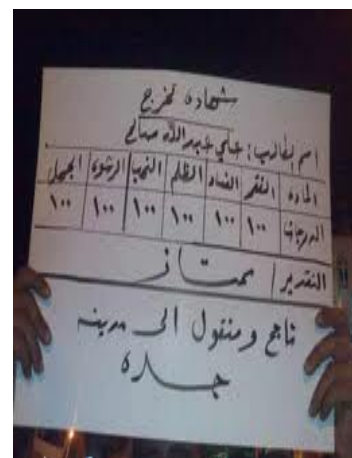 شهادة تخرج
اسم الطالب: علي عبدالله صالح
المادة الفقر الفساد الظلم النهب الرشوة الجهل
الدرجات ١٠٠ ١٠٠ ١٠٠ ١٠٠ ١٠٠ ١٠٠
التقدير / ممتاز
ناجح ومنقول الى مدينه
جده